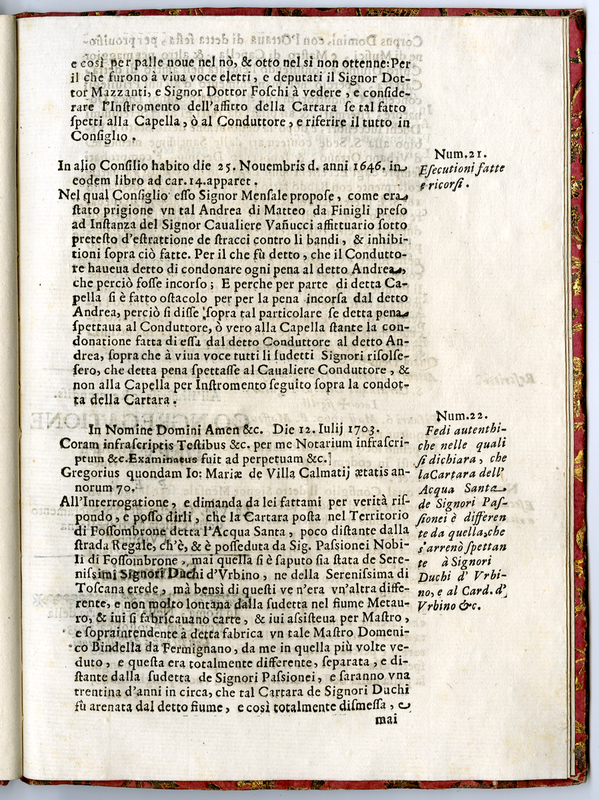 e così per palle noue nel nò, & otto nel sì non ottenne: Per
il che furono à viua voce eletti, e deputati il Signor Dot-
tor Mazzanti, e Signor Dottor Foschi à vedere, e conside-
rare l'Instromento dell'affitto della Cartara se tal fatto
spetti alla Capella, ò al Conduttore, e riferire il tutto in
Consiglio.
Num. 21.
Esecutioni fatte
e ricorsi.
In alio Consilio habito die 25. Nouembris d. anni 1646. in
eodem libro ad car. 14. apparet.
Nel qual Consiglio esso Signor Mensale propose, come era
stato prigione vn tal Andrea di Matteo da Finigli preso
ad Instanza del Signor Caualiere Vañucci affittuario sotto
pretesto d'estrattione de stracci contro li bandi, & inhibi-
tioni sopra ciò fatte. Per il che fù detto, che il Condutto-
re haueua detto di condonare ogni pena al detto Andrea,
che perciò fosse incorso; E perche per parte di detta Ca-
pella si è fatto ostacolo per per la pena incorsa dal detto
Andrea, perciò si disse sopra tal particolare se detta pena
spettaua al Conduttore, ò vero alla Capella stante la con-
donatione fatta di essa dal detto Conduttore al detto An-
drea, sopra che à viua voce tutti li sudetti Signori risolse-
sero, che detta pena spettasse al Caualiere Conduttore, &
non alla Capella per Instromento seguito sopra la condot-
ta della Cartara.
Num. 22.
Fedi autenthi-
che nelle quali
si dichiara, che
la Cartara dell'
Acqua Santa
de Signori Pas-
sionei è differen
te da quella, che
s'arrenò spettan
te à Signori
Duchi d' Vrbi-
no, e al Card. d'
Vrbino &c.
In Nomine Domini Amen &c. Die 12. Iulij 1703.
Coram infrascriptis Testibus &c. per me Notarium infrascri-
ptum &c. Examinatus fuit ad perpetuam &c.]
Gregorius quondam Io: Mariæ de Villa Calmatij ætatis an-
norum 70.
All'Interrogatione, e dimanda da lei fattami per verità ris-
pondo, e posso dirli, che la Cartara posta nel Territorio
di Fossombrone detta l'Acqua Santa, poco distante dalla
strada Regale, ch'è, & è posseduta da Sig. Passionei Nobi-
li di Fossombrone, mai quella si è saputo sia stata de Sere-
nissimi Signori Duchi d'Vrbino, ne della Serenissima di
Toscana crede, mà bensì di questi ve n'era vn'altra diffe-
rente, e non molto lontana dalla sudetta nel fiume Metau-
ro, & iui si fabricauano carte, & iui assisteua per Mastro,
e sopraintendente à detta fabrica vn tale Mastro Domeni-
co Bindella da Fermignano, da me in quella più volte ve-
duto, e questa era totalmente differente, separata, e di-
stante dalla sudetta de Signori Passionei, e saranno vna
trentina d'anni in circa, che tal Cartara de Signori Duchi
fù arenata dal detto fiume, e così totalmente dismessa, e
mai